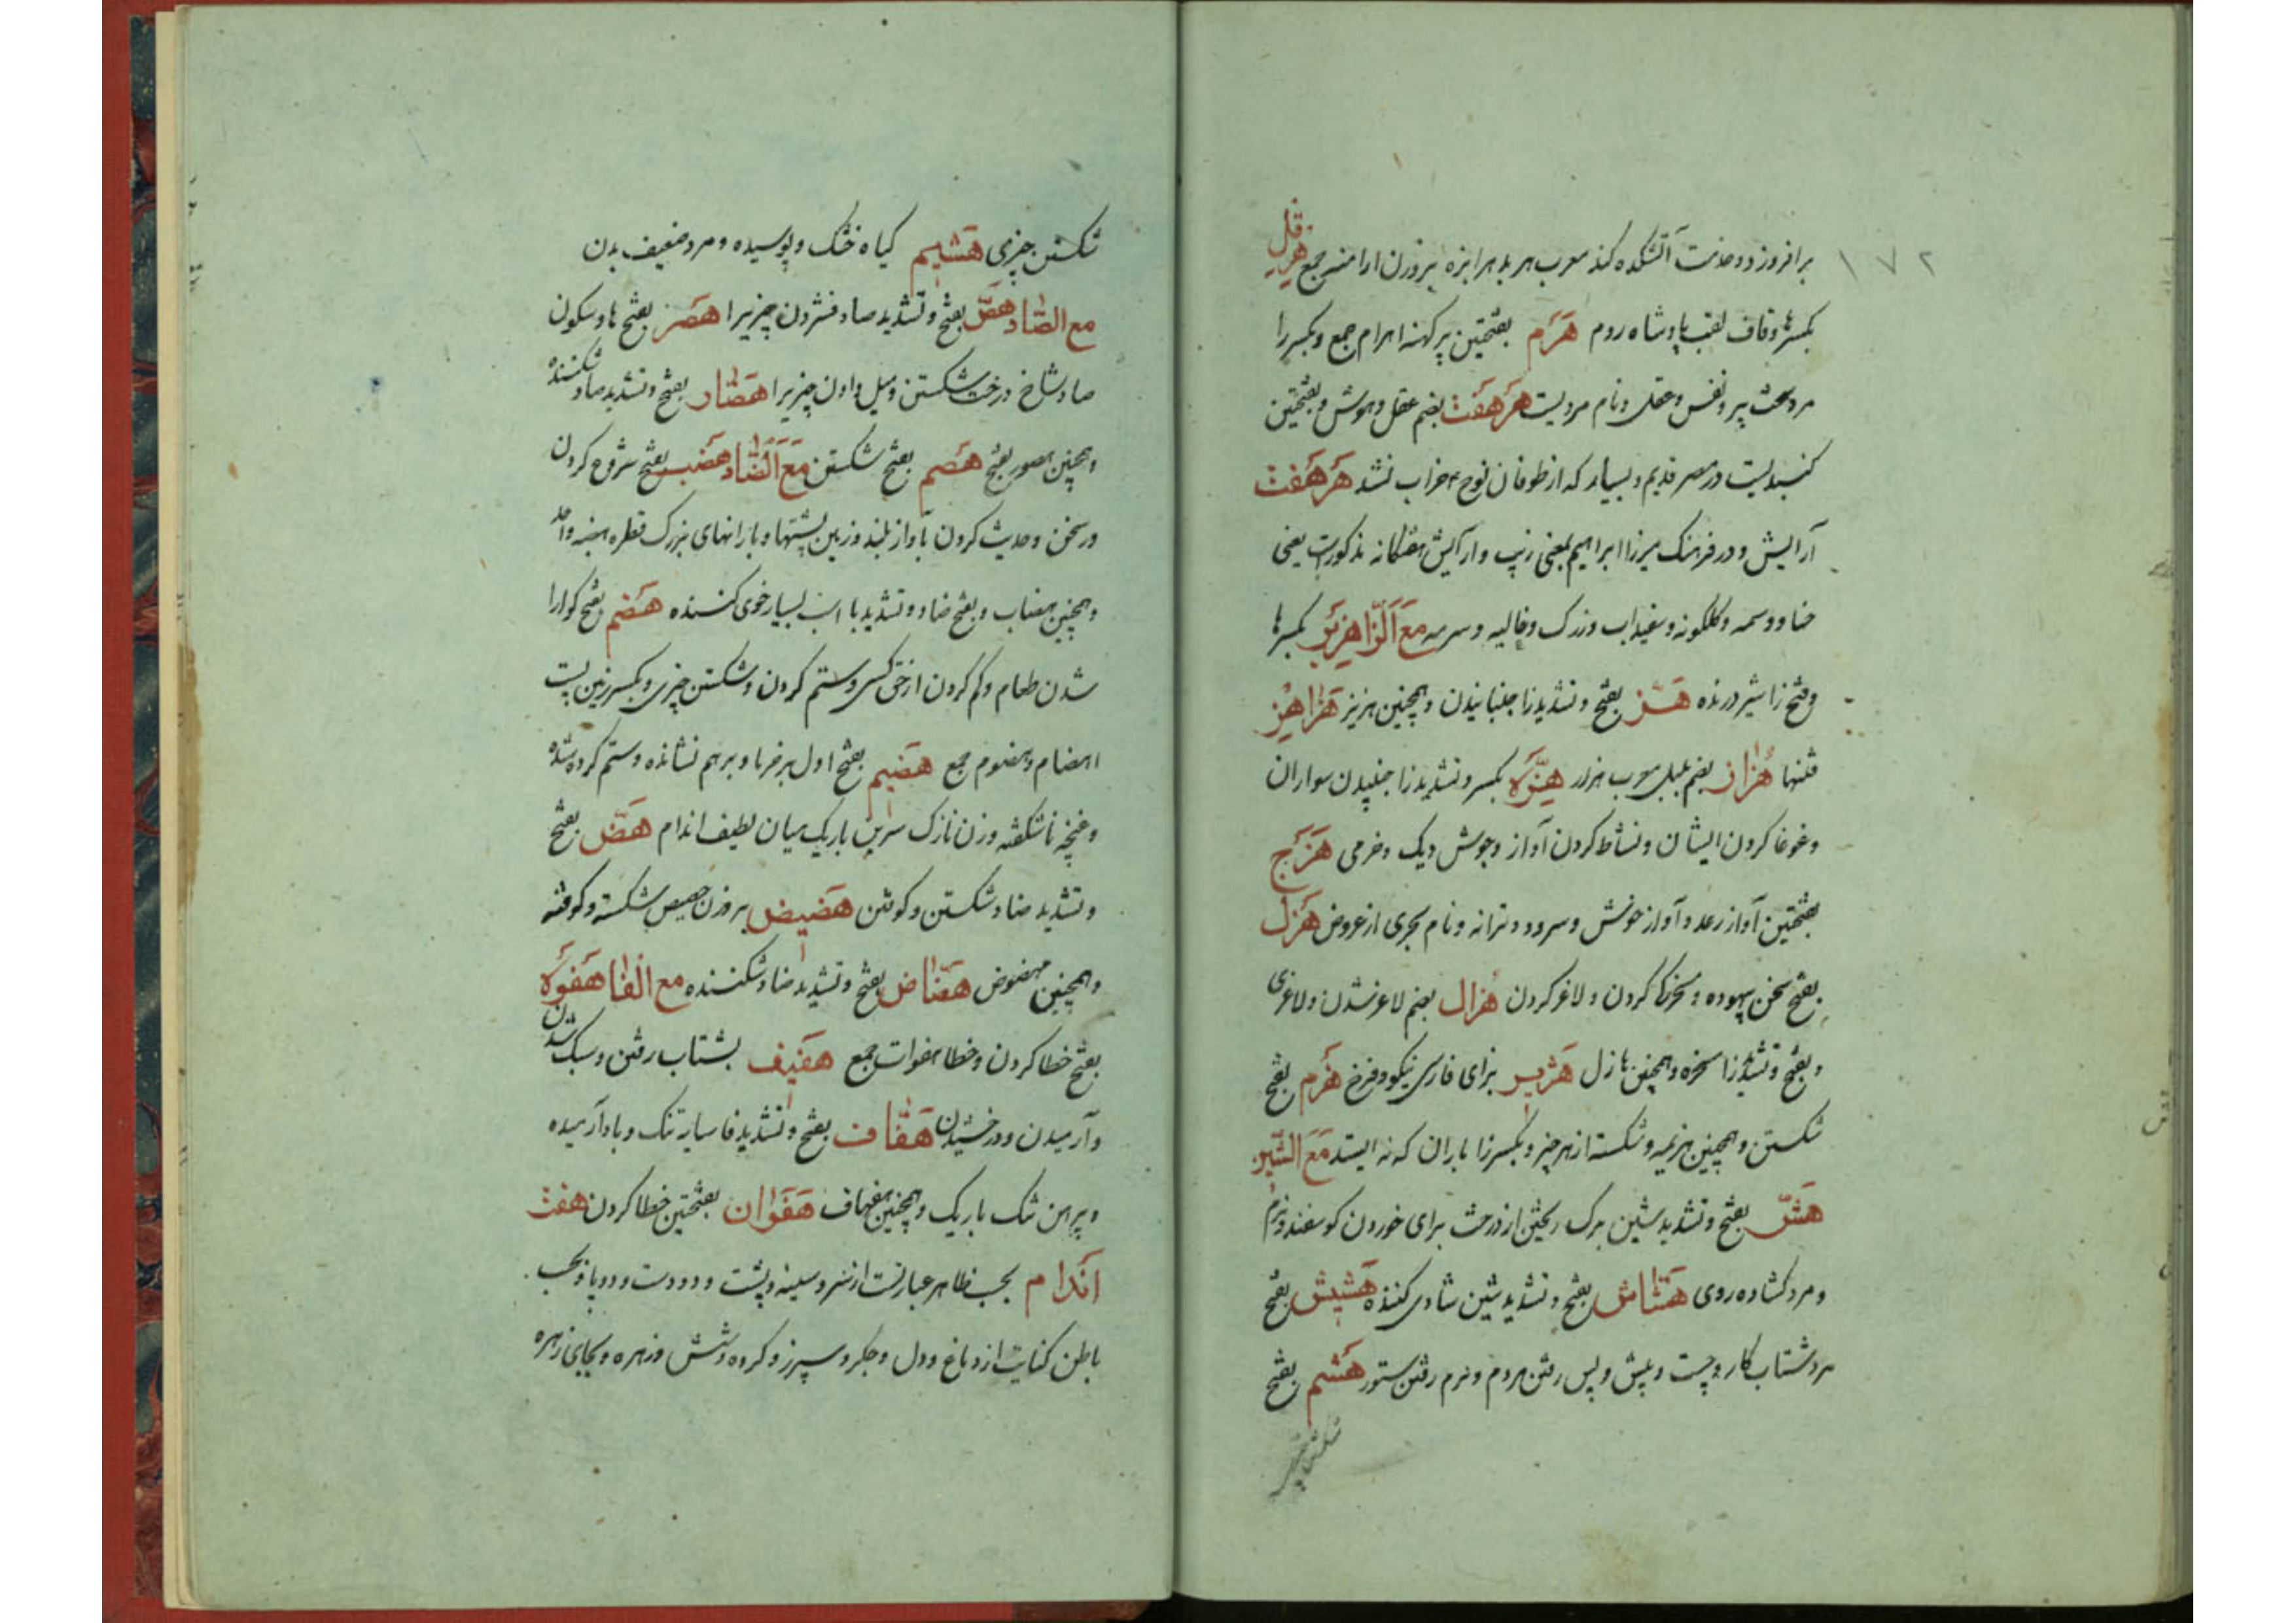 ۱۷۲
برافروزد و خدمت آتشکده کند معرب هربد هرابزه بروزن ارامنه جمع هرقل
بکسرها و قاف لقب پادشاه روم هَرَم بفتحتین پیر کهنه اهرام جمع و بکسر را
مرد سخت پیر و نفس و عقل و نام مردیست هَرهَفت بضم عقل و هوش و بفتحتین
کنبدیست در مصر قدیم و بسیار که از طوفان نوح خراب نشد هَرهَفت
آرایش و در فرهنک میرزا ابراهیم بمعنی زیب و آرایش هفتکانه مذکورست یعنی
حنا و وسمه و کلکونه و سفیداب و زرک و غالیه و سرمه مَعَ اَلزّا هِزَبر بکسرها
و فتح زا شیر درنده هَــز بفتح و تشدید زا جنبانیدن و همچنین هزیز هَزاهِز
فتنها هُزار بضم بلبل معرب هزار هِزَّه بکسر و تشدید زا جنبیدن سواران
و غوغا کردن ایشان و نشاط کردن آواز و جوش دیک و خرمی هَزَج
بفتحتین آواز رعد و آواز خوش و سرود و ترانه و نام بحری از عروض هَزل
بفتح سخن بیهوده و سخرکا کردن و لاغر کردن هُزال بضم لاغر شدن و لاغری
و بفتح و تشدید زا سخره و همچنین هازل هَژیر بزای فارسی نیکو و فرخ هَزم بفتح
شکستن و همچنین هزیمه و شکسته از هر چیز و بکسر زا باران که نه ایستد مَعَ الشّین
هَشّ بفتح و تشدید شین برک ریختن از درخت برای خوردن کوسفند و نرم
و مرد کشاده روی هَشّاش بفتح و تشدید شین شادی کننده هَشیش بفتح
مرد شتاب کار و چست و پیش و پس رفتن مردم و نرم رفتن ستور هَشم بفتح
شکستن چیزی
شکستن چیزی هَشیم کیاه خشک و پوسیده و مرد ضعیف بدن
مع الصّاد هَصّ بفتح و تشدید صاد فشردن چیزیرا هَصر بفتح ها و سکون
صاد شاخ درخت شکستن و میل دادن چیزیرا هَصّار بفتح و تشدید صاد شکننده
و همچنین هصور بفتح هَصم بفتح شکستن مَعَ اَلضّاد هَضب بفتح شروع کردن
در سخن و حدیث کردن بآواز بلند و زمین پشتها و بارانهای بزرک قطره هضبه واحد
و همچنین هضاب و بفتح ضاد و تشدید با اسب بسیار خوی کننده هَضم بفتح کوارا
شدن طعام و کم کردن از حق کسی و ستم کردن و شکستن چیزی و بکسر زمین پست
اهضام و هضوم جمع هَضیم بفتح اول برفرما و برهم نشانده و ستم کرده شده
و غنچه ناشکفته و زن نازک سرین باریک میان لطیف اندام هَضّ بفتح
و تشدید ضاد شکستن و کوفتن هَضیض بروزن حصیص شکسته و کوفته
و همچنین مهضوض هَضّاض بفتح و تشدید ضاد شکننده مع الفا هَفوَه
بفتح خطا کردن و خطا هفوات جمع هَفیف بشتاب رفتن و سبک شدن
و آرمیدن و درخشیدن هَفّاف بفتح و تشدید فا سایه تنک و باد آرمیده
و پیراهن تنک باریک و همچنین هفهاف هَفَوان بفتحتین خطا کردن هفت
اَندام بحسب ظاهر عبارتست از سر و سینه و پشت و دو دست و دو پا و بحسب
باطن کنایت از دماغ و دل و جکر و سپرز و کرده و شش و زهره و بجای زهره